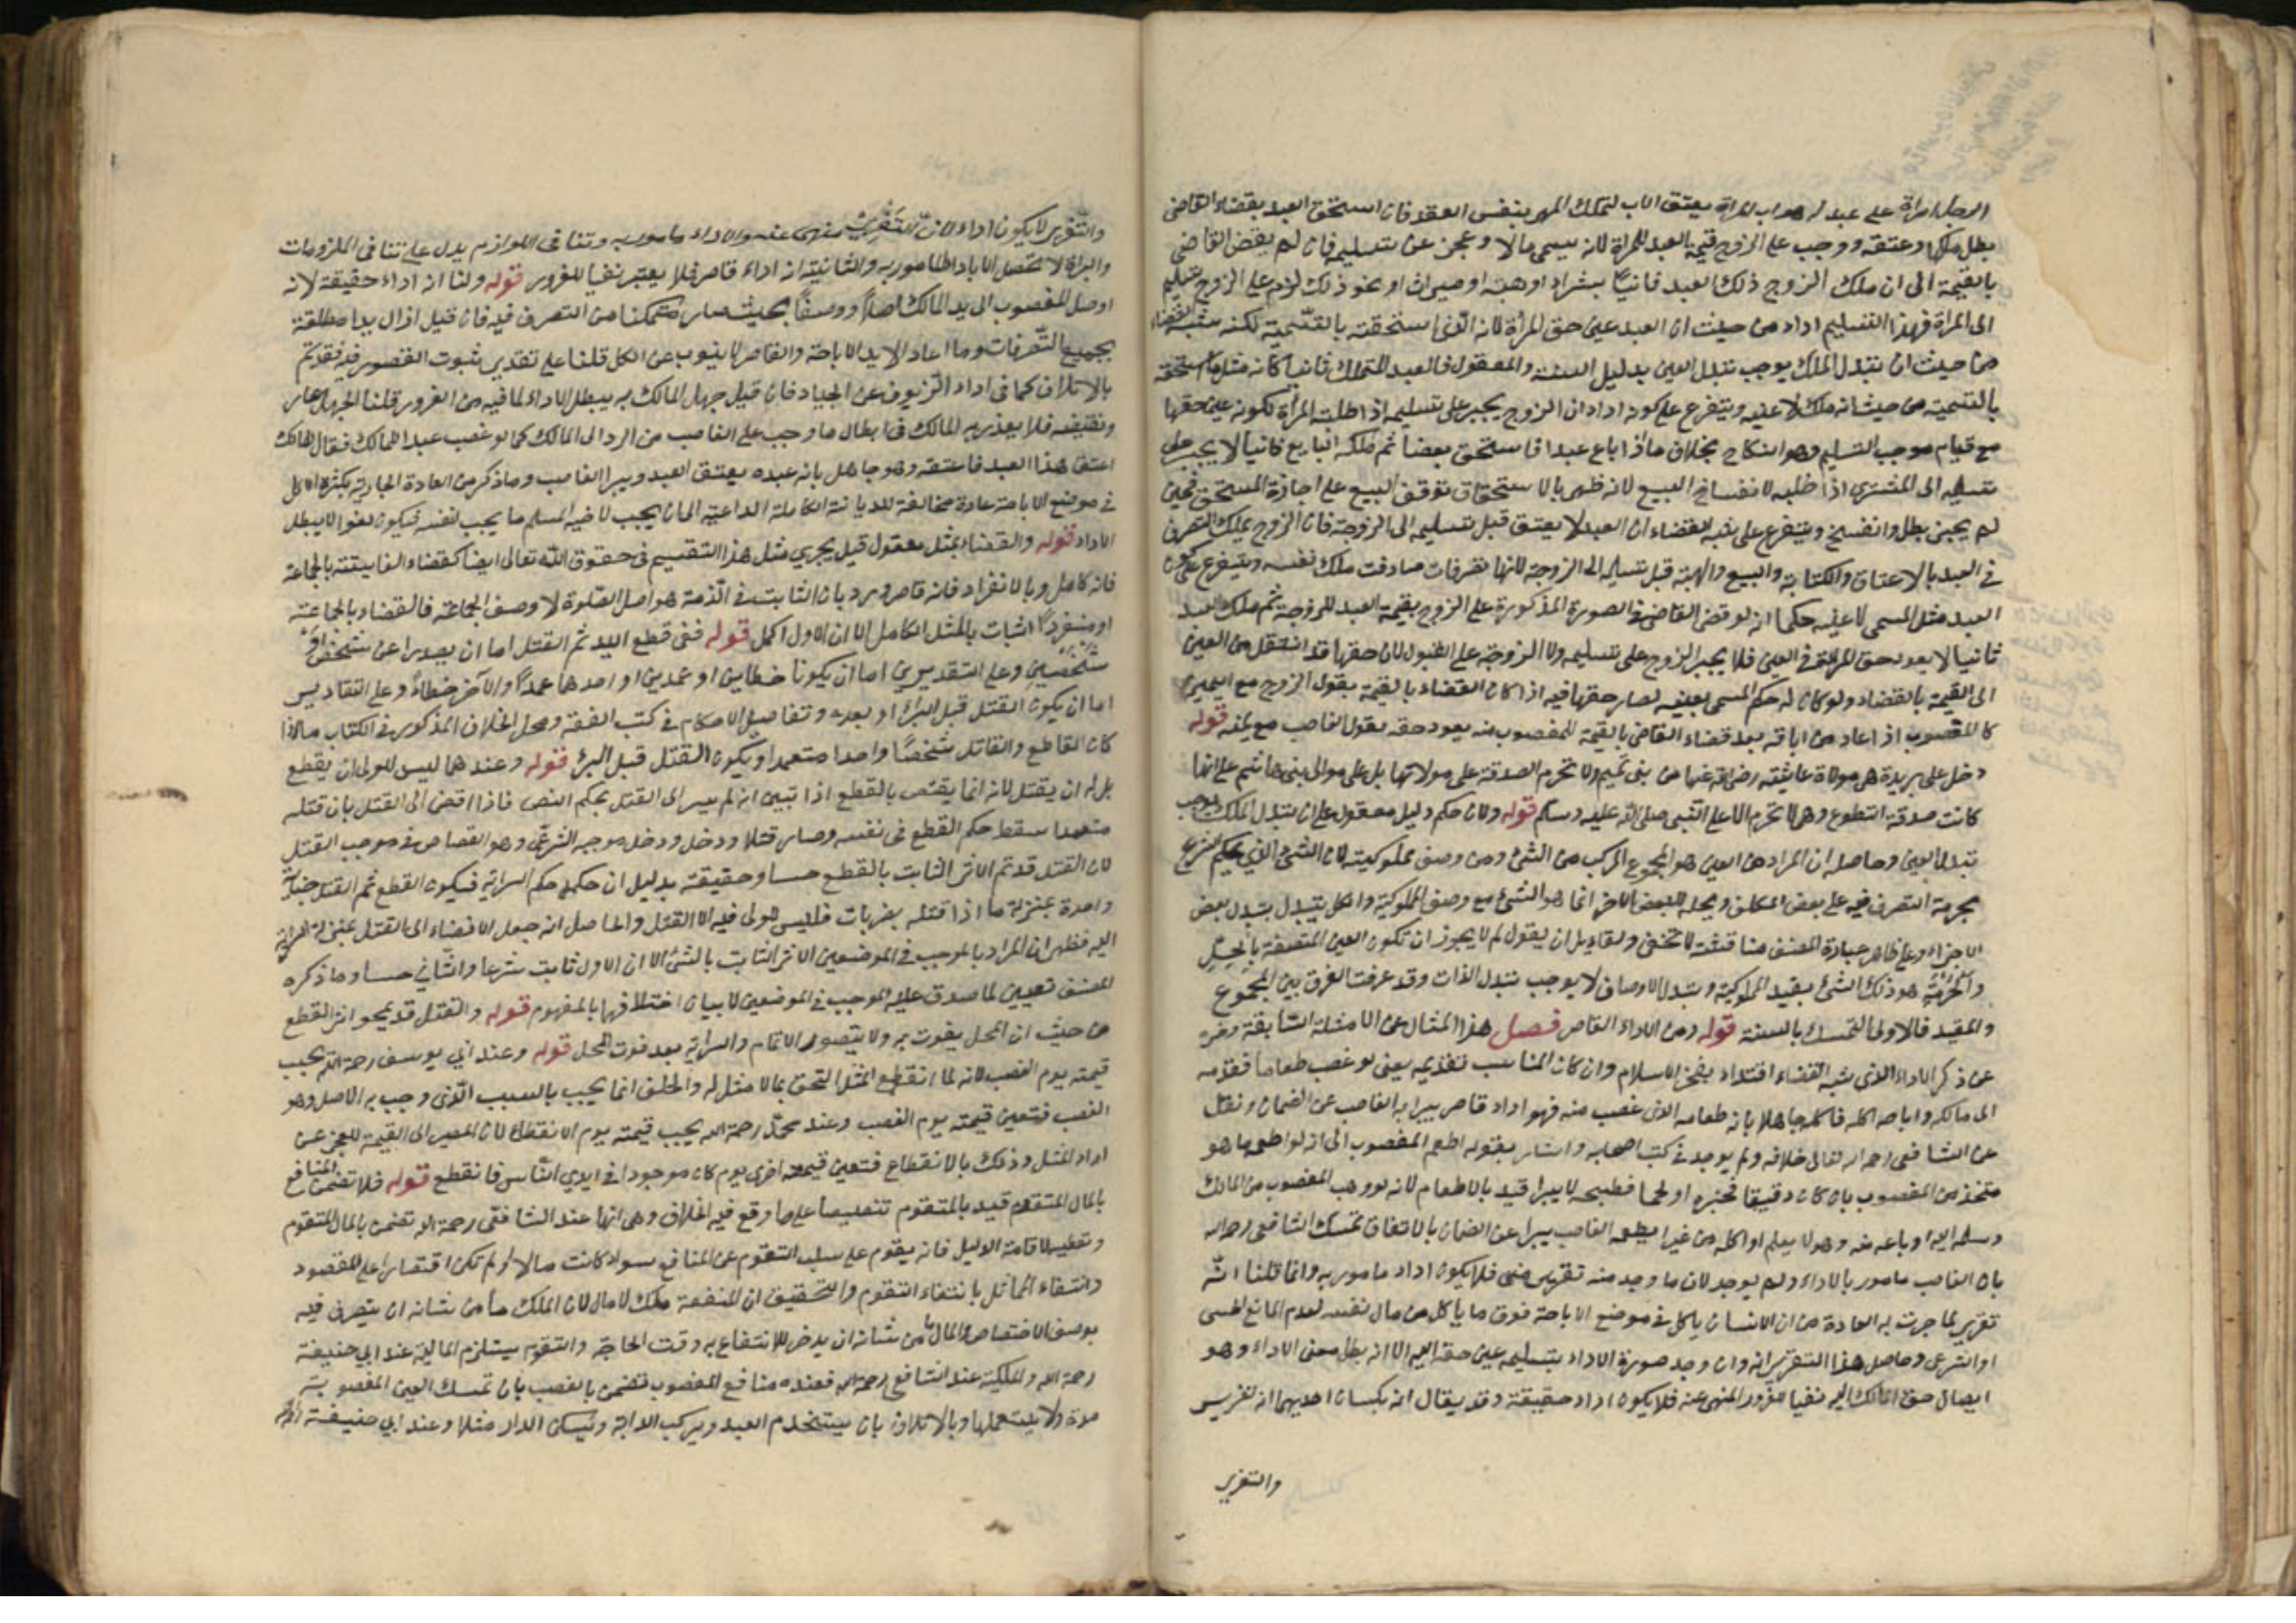 الرجل امراة على عبد له هو اب المراة يعتق الاب لتملك المهر بنفس العقد فان استحق العبد بقضاء القاضي
بطل ملكها وعتقه ووجب على الزوج قيمة العبد للمراة لانه سمى مالا وعجز عن تسليمه فان لم يقض القاضي
بالقيمة الى ان ملك الزوج ذلك العبد ثانيا بشراء او هبة او ميراث او نحو ذلك لزم على الزوج تسليم
الى المراة فهذا التسليم اداء من حيث ان العبد عين حق المرأة لانه الذي استحقته بالتسمية لكنه شبه القضاء
من حيث ان تبدل الملك يوجب تبدل العين بدليل السنة والمعقول فالعبد المتملك ثانيا كانه مثل ما استحقته
بالتسمية من حيث انه ملك لا عينه ويتفرع على كونه اداء ان الزوج يجبر على تسليمه اذا طلبت المرأة لكونه عين حقها
مع قيام موجب التسليم وهو النكاح بخلاف ما اذا باع عبدا فاستحق بعضا ثم ملكه البايع ثانيا لا يجبر على
تسليمه الى المشتري اذا طلبه لانفساخ البيع لانه ظهر بالاستحقاق توقف البيع على اجازة المستحق فحين
لم يجز بطل وانفسخ ويتفرع على شبه القضاء ان العبد لا يعتق قبل تسليمه الى الزوجة فان الزوج يملك التصرف
في العبد بالاعتاق والكتابة والبيع والهبة قبل تسليمه الى الزوجة لانها تصرفات صادفت ملك نفسه ويتفرع على كون
العبد مثل المسمى لا عينه حكما انه لو قضى القاضي في الصورة المذكورة على الزوج بقيمة العبد للزوجة ثم ملك العبد
ثانيا لا يعود حق المراة في العين فلا يجبر الزوج على تسليمه ولا الزوجة على القبول لان حقها قد انتقل من العين
الى القيمة بالقضاء ولو كان له حكم المسمى بعينه لصار حقها فيه اذا كان القضاء بالقيمة بقول الزوج مع اليمين
كالمغصوب اذ اعاد من اباقه بعد قضاء القاضي بالقيمة للمغصوب منه يعود حقه بقول الغاصب مع يمينه قوله
دخل على بريدة هي مولاة عايشة رضي الله عنها من بني تميم ولا تحرم الصدقة على مولاتها بل على موالي بني هاشم على انها
كانت صدقة التطوع وهي لا تحرم الا على النبي صلى الله عليه وسلم قوله ولان حكم دليل معقول على ان تبدل الملك يوجب
تبدل العين وحاصله ان المراد من العين هو المجموع المركب من الشئ ومن وصف مملوكيته لان الشئ الذي يحكم الشرع
بحرمة التصرف فيه على بعض المكلفين ويحله للبعض الاخر انما هو الشئ مع وصف المملوكية والكل يتبدل بتبدل بعض
الاجزاء وعلى ظاهر عبارة المصنف مناقشة لا تخفى ولقايل ان يقول لم لا يجوز ان تكون العين المتصفة بالحل
والحرمة هو ذلك الشئ بقيد المملوكية وتبدل الاوصاف لا يوجب تبدل الذات وقد عرفت الفرق بين المجموع
والمقيد فالاولى التمسك بالسنة قوله ومن الاداء القاصر فصل هذا المثال عن الامثلة السابقة واخره
عن ذكر الاداء الذي شبه القضاء اقتداء بفخر الاسلام وان كان المناسب تقديمه يعني لو غصب طعاما فقدمه
الى مالكه واباحه اكله فاكله جاهلا بانه طعامه الذي غصب منه فهو اداء قاصر يبرا به الغاصب عن الضمان ونقل
عن الشافعي رحمه الله تعالى خلافه ولم يوجد في كتب اصحابه واشار بقوله اطعم المغصوب الى انه لو اطعمه ما هو
متخذ من المغصوب بان كان دقيقا فخبزه او لحما فطبخه لا يبرا قيد بالاطعام لانه لو وهب المغصوب من المالك
وسلمه اليه او باعه منه وهو لا يعلم او اكله من غير ان يطعمه الغاصب يبرا عن الضمان بالاتفاق تمسك الشافعي رحمه الله
بان الغاصب مامور بالاداء ولم يوجد لان ما وجد منه تغرير منهي فلا يكون اداء مامور به وانما قلنا انه
تغرير لما جرت به العادة من ان الانسان ياكل في موضع الاباحة فوق ما ياكل من مال نفسه لعدم المانع الحسي
او الشرعي وحاصل هذا التقرير انه وان وجد صورة الاداء بتسليمه عين حقه اليه الا انه بطل معنى الاداء وهو
ايصال حق المالك اليه نفيا للغرور المنهي عنه فلا يكون اداء حقيقة وقد يقال انه بكسبان احديهما انه تغرير
والتغرير
والتغرير لا يكون اداء لان التغرير منهي عنه والاداء مامور به وتنافي اللوازم يدل على تنافي الملزومات
والبراة لا تحصل الا باداء المامور به والثانية انه اداء قاصر فلا يعتبر نفيا للغرور قوله ولنا انه اداء حقيقة لانه
اوصل المغصوب الى يد المالك اصلا ووصفا بحيث صار متمكنا من التصرف فيه فان قيل ازال يدا مطلقة
بجميع التصرفات وما اعاد الا يد الاباحة والقاصر لا ينوب عن الكل قلنا على تقدير ثبوت القصور فيه فقد تم
بالاتلاف كما في اداء الزيوف عن الجياد فان قيل جهل المالك به يبطل الاداء لما فيه من الغرور قلنا الجهل عار
ونقيصة فلا يعذر به المالك في ابطال ما وجب على الغاصب من الرد الى المالك كما لو غصب عبدا للمالك فقال للمالك
اعتق هذا العبد فاعتقه وهو جاهل بانه عبده يعتق العبد ويبرا الغاصب وما ذكر من العادة الجارية بكثرة الاكل
في موضع الاباحة عادة مخالفة للديانة الكاملة الداعية الى ان يحب لاخيه المسلم ما يحب لنفسه فيكون لغوا لا يبطل
الاداء قوله والقضاء بمثل معقول قيل يجري مثل هذا التقسيم في حقوق الله تعالى ايضا كقضاء الفايتة بالجماعة
فانه كامل وبالانفراد فانه قاصر ورد بان الثابت في الذمة هو اصل الصلوة لا وصف الجماعة فالقضاء بالجماعة
او منفردا اثبات بالمثل الكامل الا ان الاول اكمل قوله ففي قطع اليد ثم القتل اما ان يصدرا عن شخص او
شخصين وعلى التقديرين اما ان يكونا خطاين او عمدين او احدهما عمدا والآخر خطاء وعلى التقادير
اما ان يكون القتل قبل البرء او بعده وتفاصيل الاحكام في كتب الفقه ومحل الخلاف المذكور في الكتاب ما اذا
كان القاطع والقاتل شخصا واحدا متعمدا ويكون القتل قبل البرء قوله وعندهما ليس للولي ان يقطع
بل له ان يقتل لانه انما يقتص بالقطع اذا تبين انه لم يسر الى القتل بحكم النص فاذا افضى الى القتل بان قتله
متعمدا سقط حكم القطع في نفسه وصار قتلا ودخل ودخل موجبه الشرعي وهو القصاص في موجب القتل
لان القتل قد تم الاثر الثابت بالقطع حسا وحقيقة بدليل ان حكمه حكم السراية فيكون القطع ثم القتل جناية
واحدة بمنزلة ما اذا قتله بضربات فليس للولي فيه الا القتل والحاصل انه جعل الافضاء الى القتل بمنزلة السراية
اليه فظهر ان المراد بالموجب في الموضعين الاثر الثابت بالشئ الا ان الاول ثابت شرعا والثاني حسا وما ذكره
المصنف تعيين لما صدق عليه الموجب في الموضعين لا بيان اختلافهما بالمفهوم قوله والقتل قد يمحو اثر القطع
من حيث ان المحل يفوت به ولا يتصور الاتمام والسراية بعد فوت المحل قوله وعند ابي يوسف رحمه الله يجب
قيمته يوم الغصب لانه لما انقطع المثل التحق بما لا مثل له والخلف انما يجب بالسبب الذي وجب به الاصل وهو
الغصب فتعين قيمته يوم الغصب وعند محمد رحمه الله يجب قيمته يوم الانقطاع لان المصير الى القيمة للعجز عن
اداء المثل وذلك بالانقطاع فتعين قيمته اخرى يوم كان موجودا في ايدي الناس فانقطع قوله فلا تضمن المنافع
بالمال المتقوم قيد بالمتقوم تنصيصا على ما وقع فيه الخلاف وهي انها عند الشافعي رحمه الله تضمن بالمال المتقوم
وتمهيدا لاقامة الدليل فانه يقوم على سلب التقوم عن المنافع سواء كانت مالا او لم تكن اقتصارا على المقصود
وانتفاء التماثل بانتفاء التقوم والتحقيق ان المنفعة ملك لا مال لان الملك ما من شانه ان يتصرف فيه
بوصف الاختصاص والمال ما من شانه ان يدخر للانتفاع به وقت الحاجة والتقوم يستلزم المالية عند ابي حنيفة
رحمه الله والملكية عند الشافعي رحمه الله فعنده منافع المغصوب تضمن بالغصب بان تمسك العين المغصوبة
مدة ولا يستعملها وبالاتلاف بان يستخدم العبد ويركب الدابة ويسكن الدار مثلا وعند ابي حنيفة رحمه الله